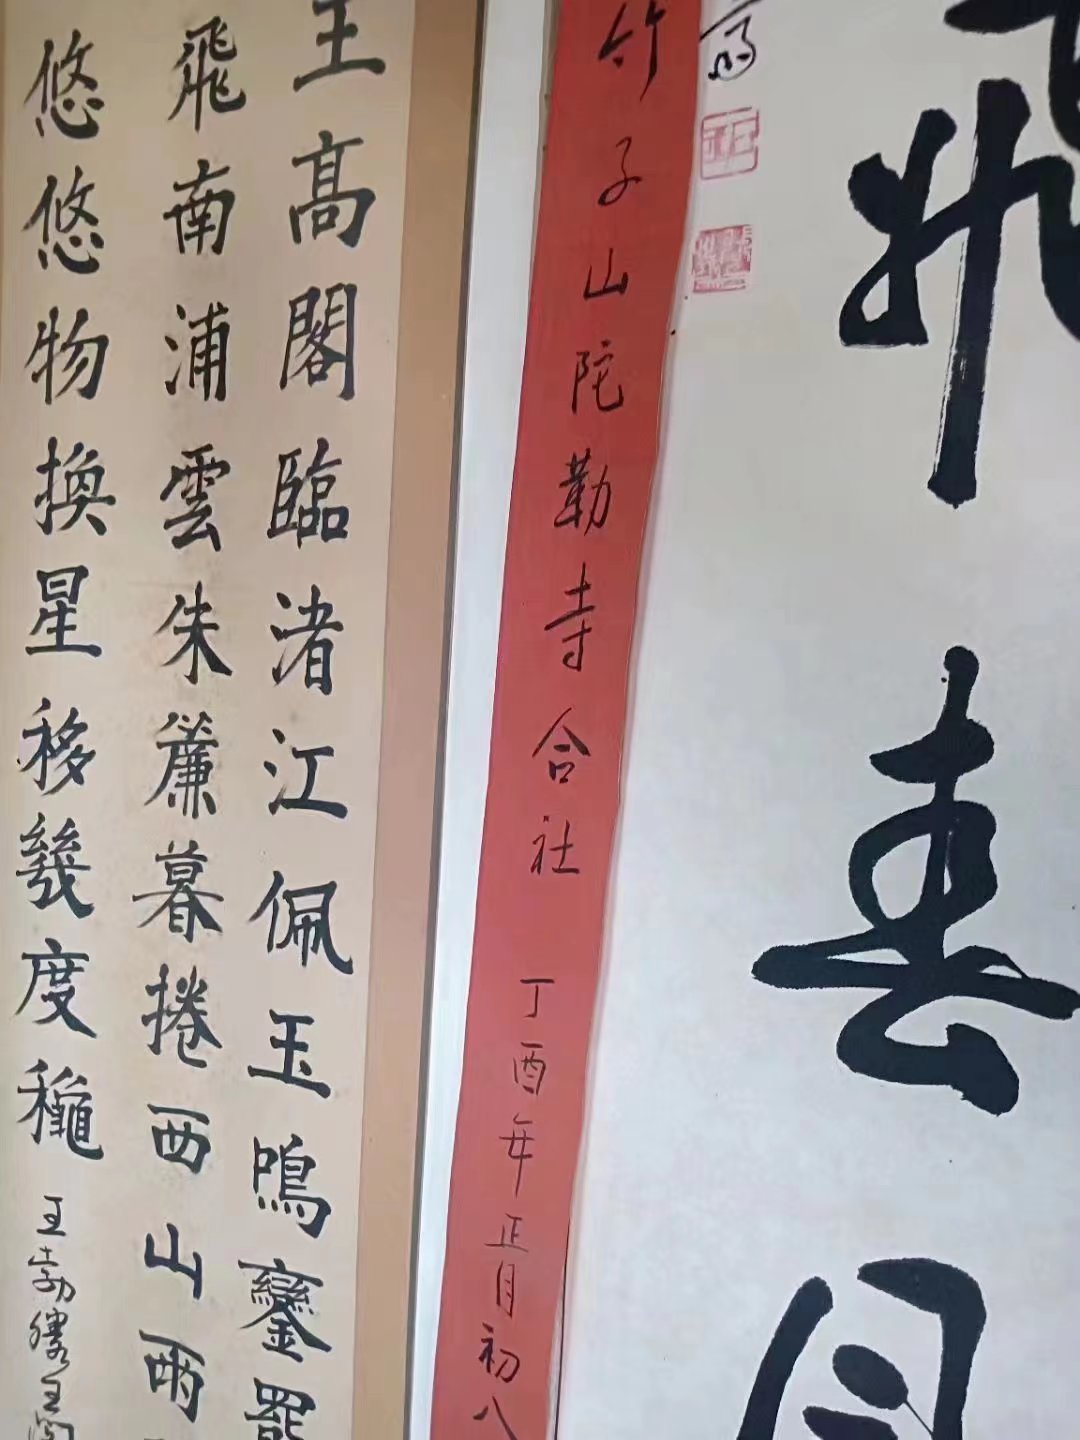 升
春
竹子山陀勒寺合社 丁酉年正月初八
王高閣臨渚江佩玉鳴鑾罷
飛南浦雲朱簾暮捲西山雨
悠悠物換星移幾度穐
王勃滕王閣